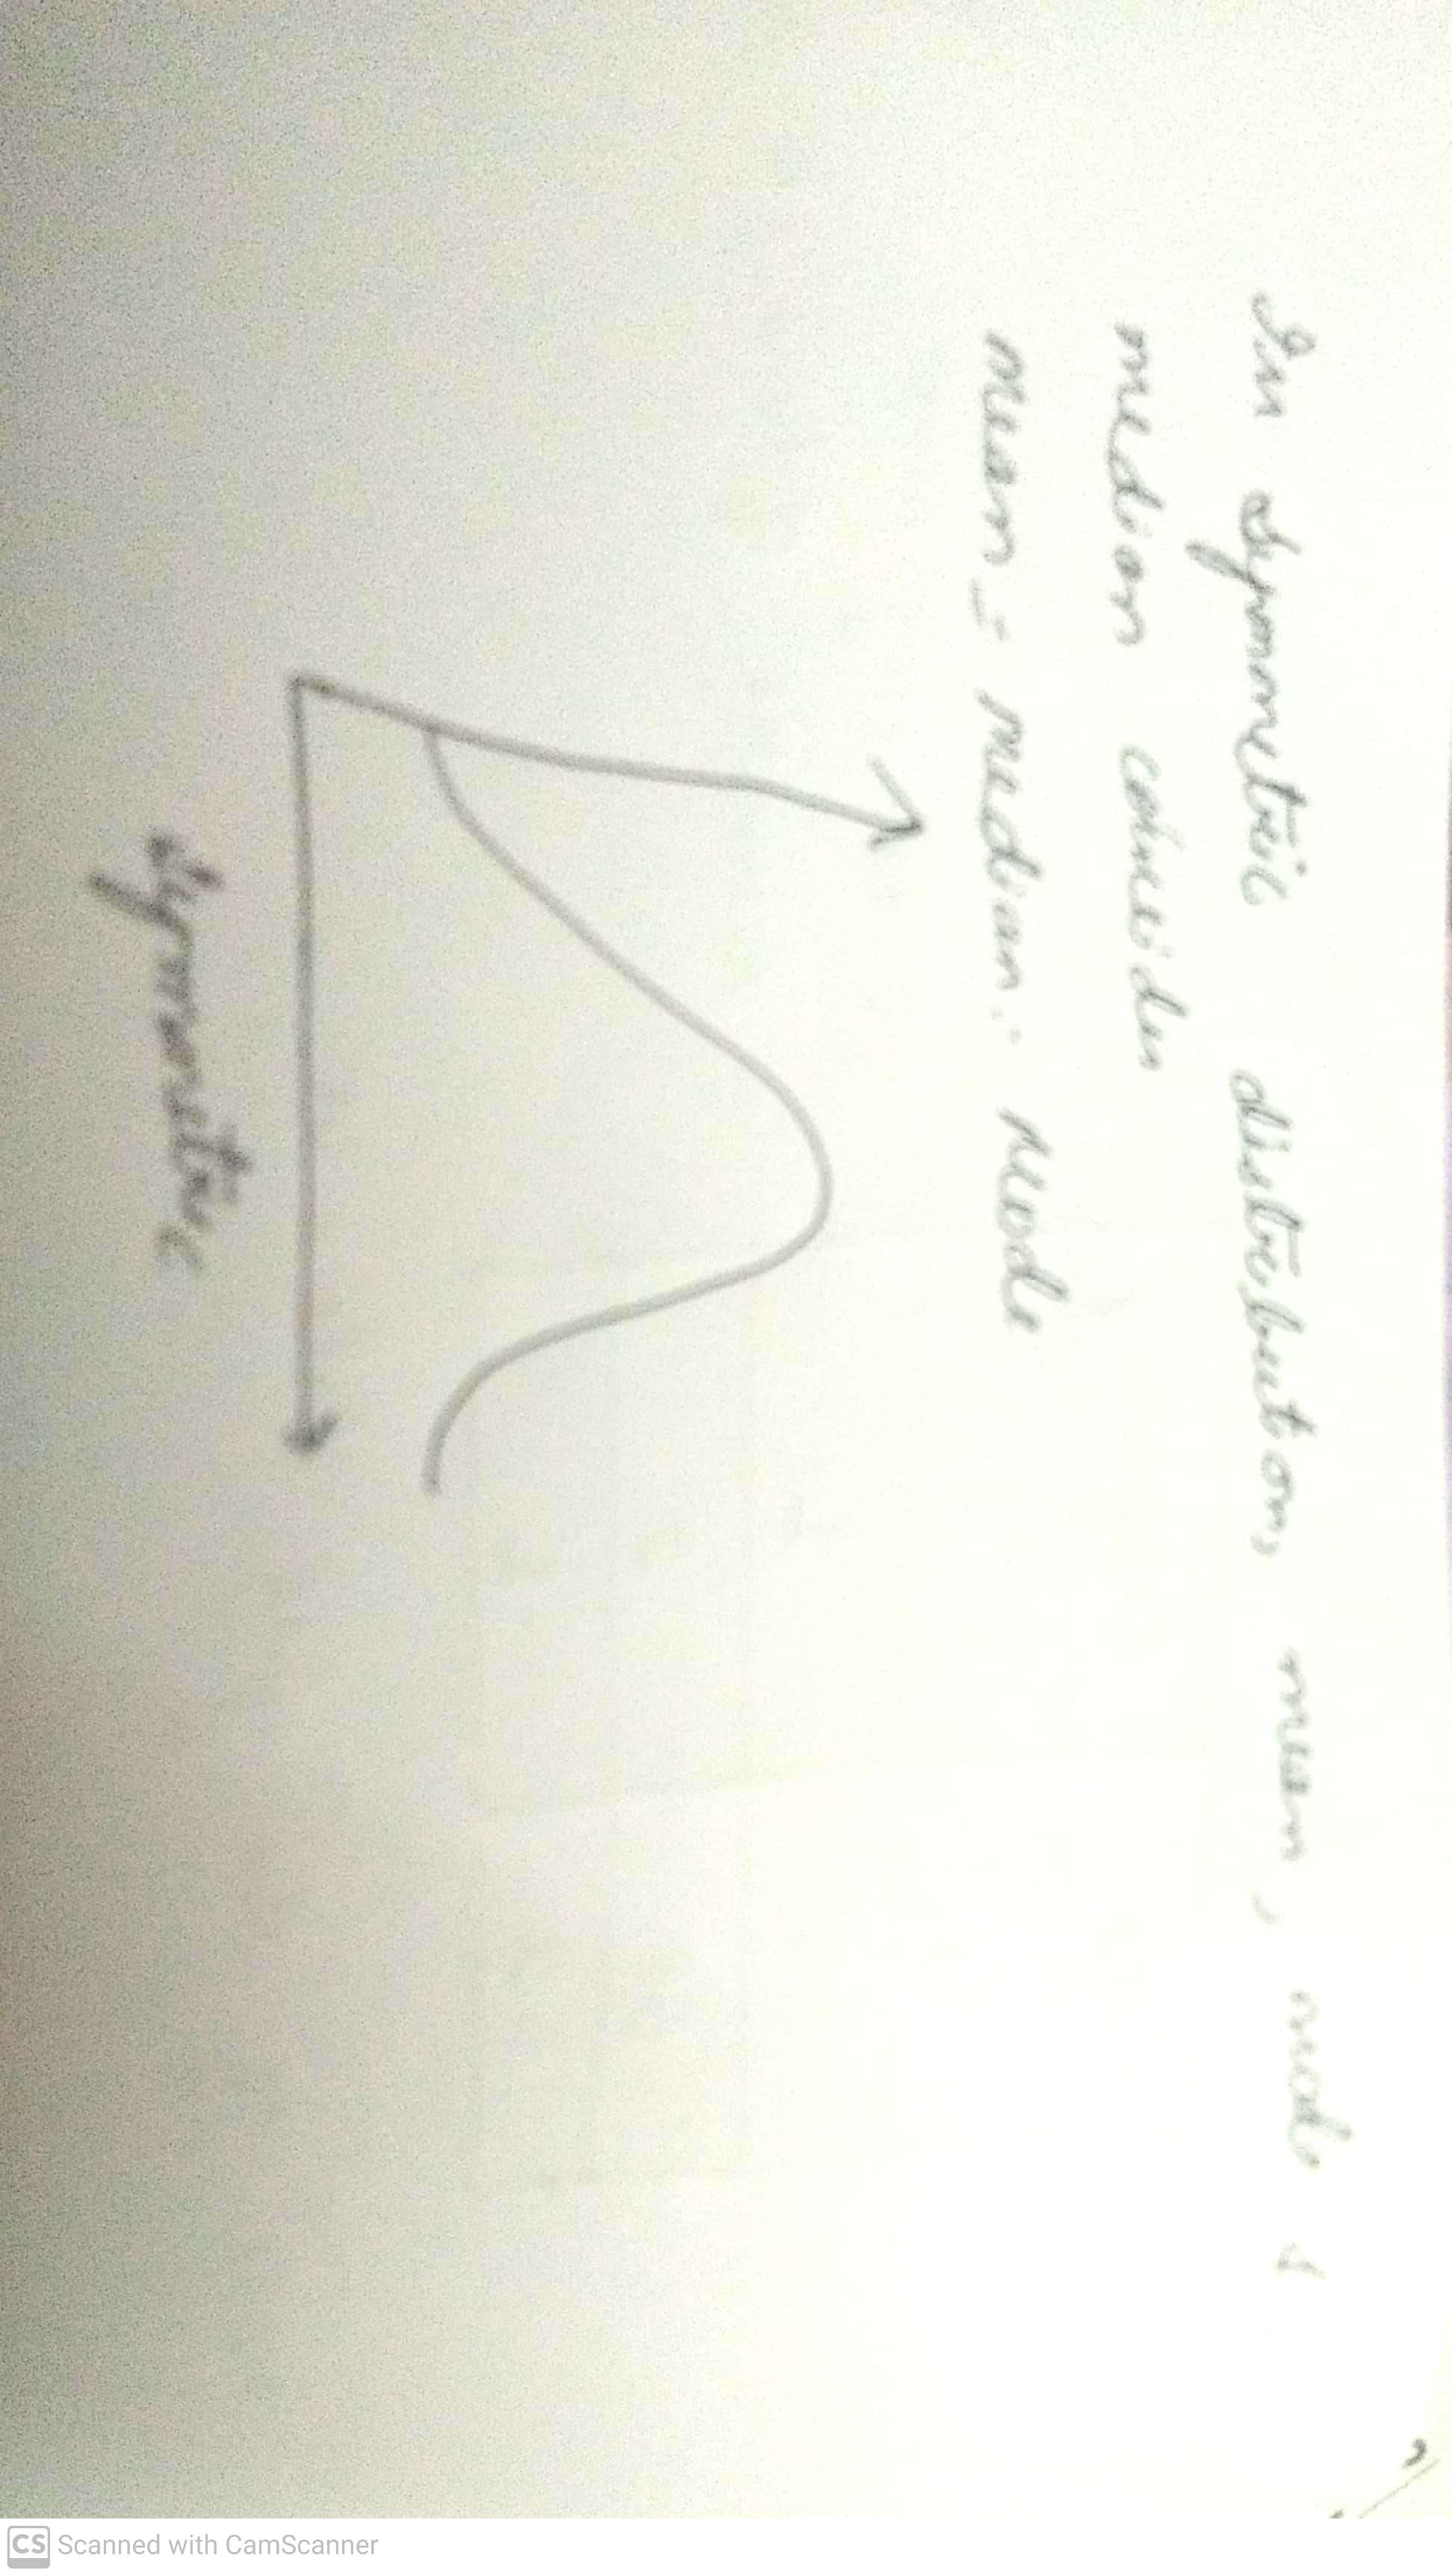 In symmetric distribution, mean, mode &
median coincides
mean = median = mode
symmetric
CS Scanned with CamScanner